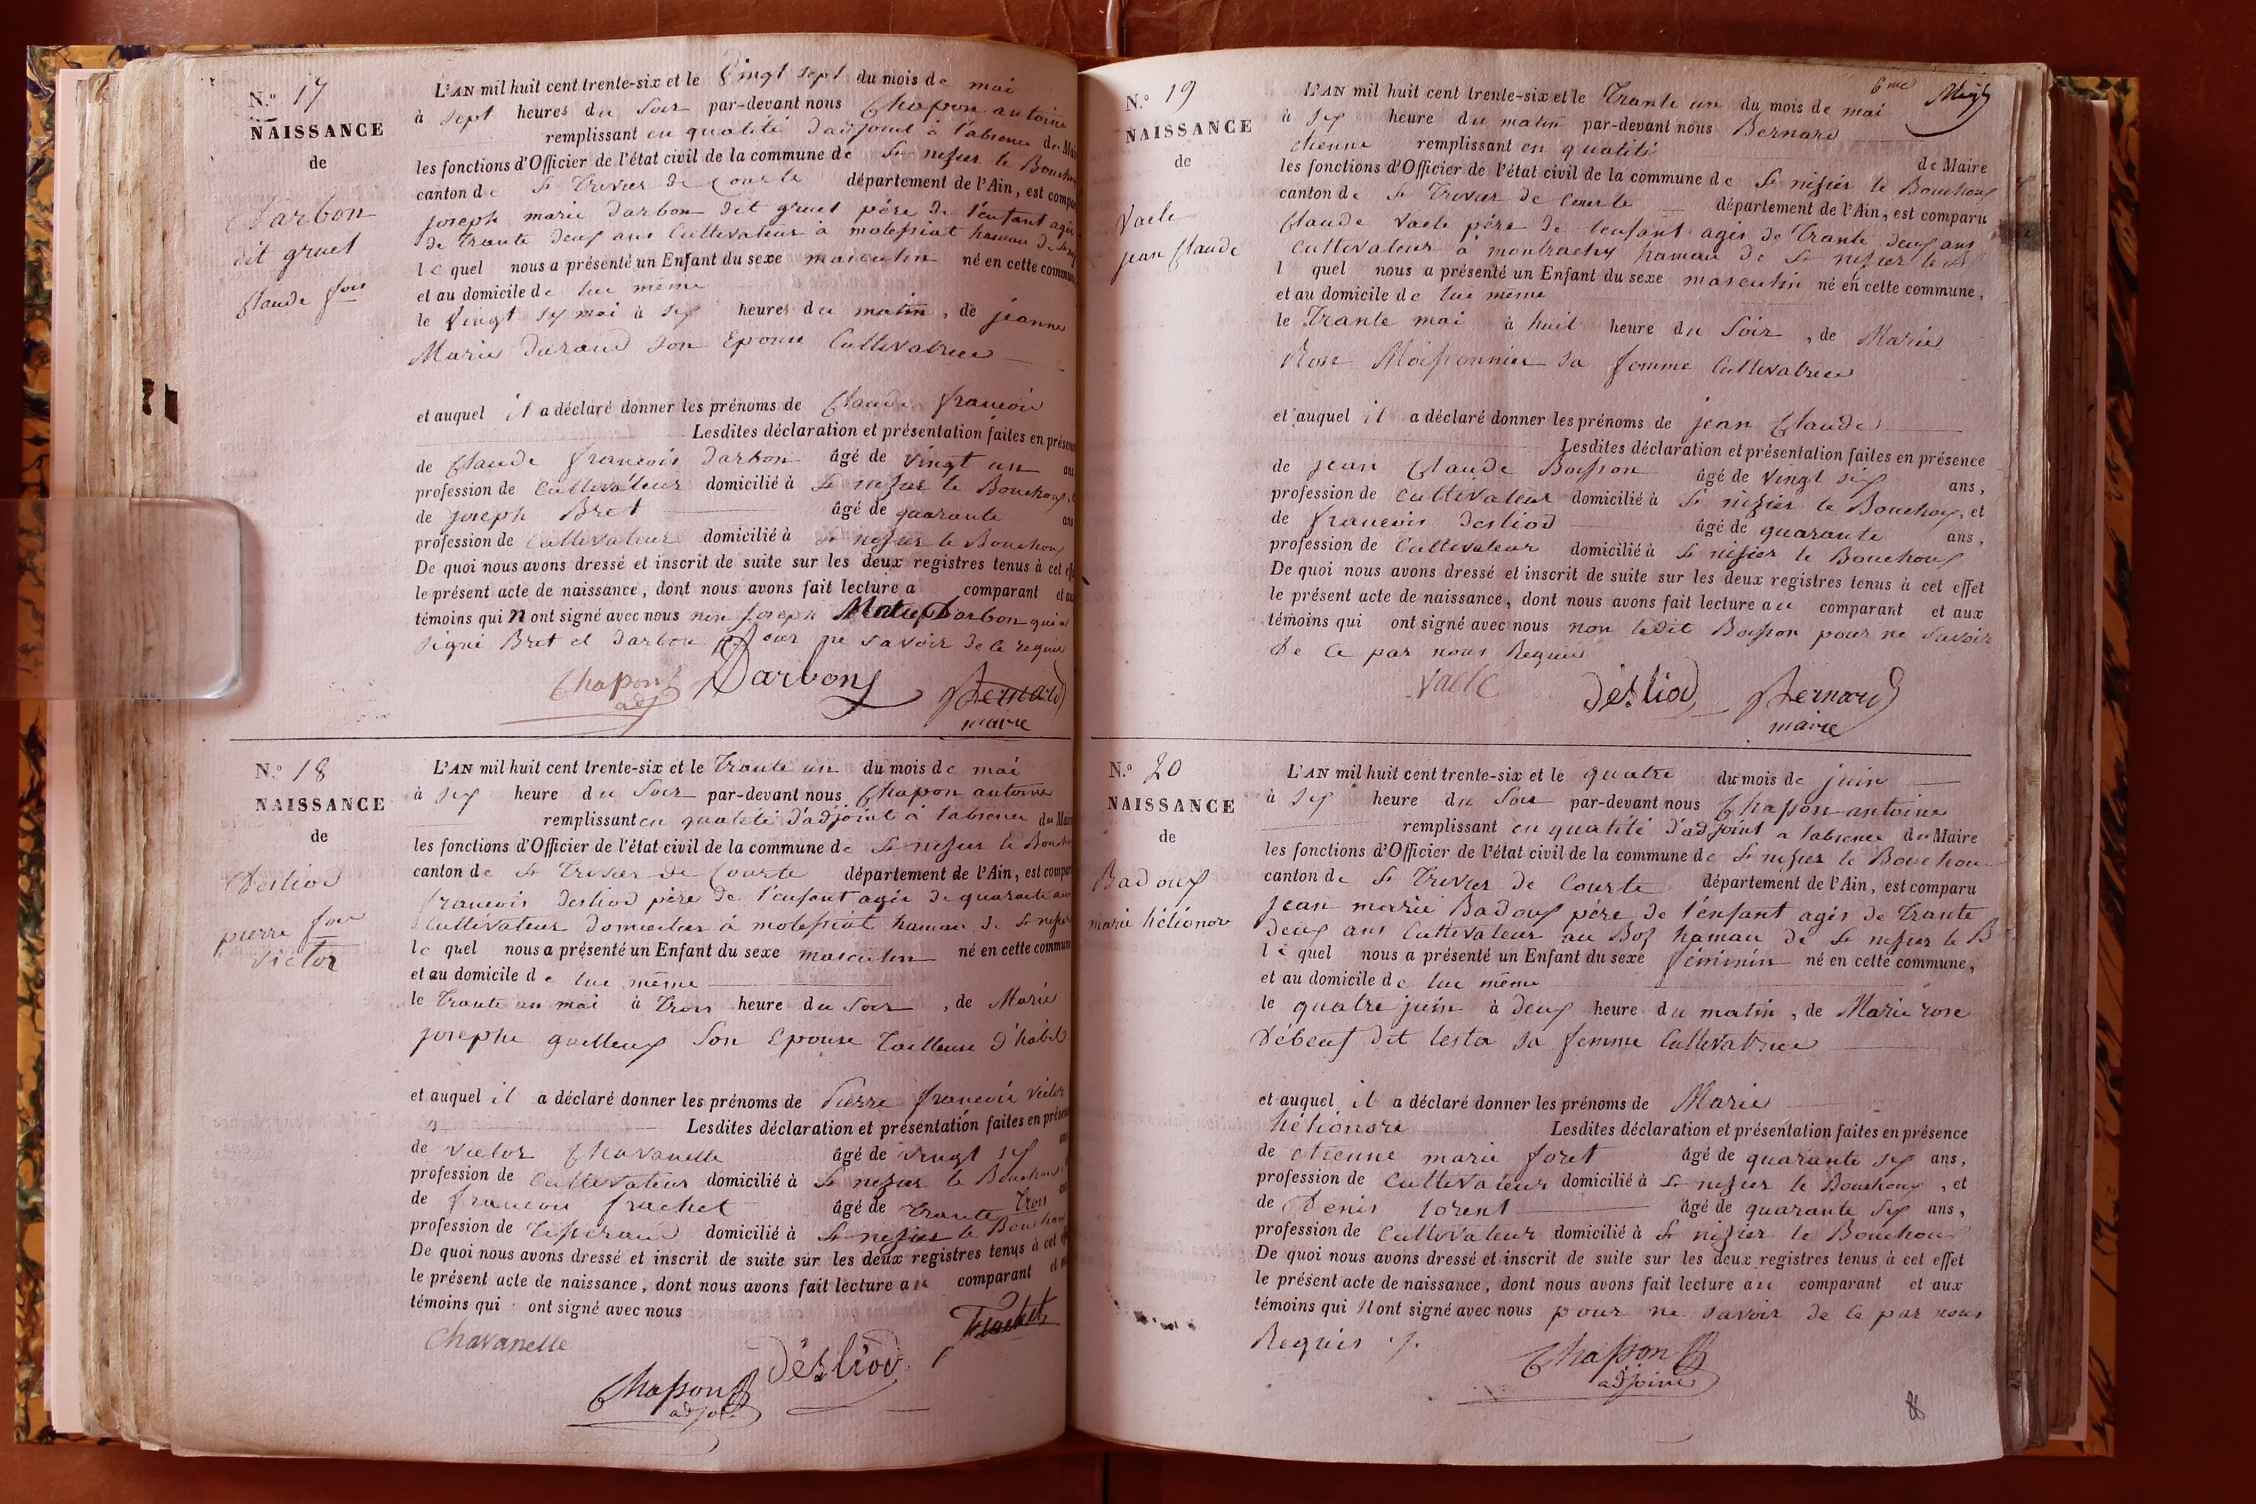 N.º 17
NAISSANCE
de
Darbon
dit gruet
Claude fois
L'AN mil huit cent trente-six et le Vingt sept du mois de mai
à sept heures du Soir par-devant nous Chapon antoine
remplissant en qualité d'adjoint à l'absence du Mai
les fonctions d'Officier de l'état civil de la commune de St nizier le Bouchou
canton de St Trivier de Courte département de l'Ain, est compar
joseph marie darbon dit gruet père de l'enfant agés
de Trante deux ans Cultivateur a molessiat hamau de St niz
le quel nous a présenté un Enfant du sexe masculin né en cette commune
et au domicile de lui même
le Vingt sy mai à six heures du matin, de jeanne
Marie durand son Epouse Cultivatrice
et auquel il a déclaré donner les prénoms de Claude françois
Lesdites déclaration et présentation faites en présence
de Claude françois darbon âgé de vingt un ans
profession de Cultivateur domicilié à St nizier le Bouchoux,
de joseph Bret âgé de quarante ans
profession de Cultivateur domicilié à St nizier le Bouchoux
De quoi nous avons dressé et inscrit de suite sur les deux registres tenus à cet eff
le présent acte de naissance, dont nous avons fait lecture a comparant et au
témoins qui N ont signé avec nous non joseph Marie Darbon qui a
signé Bret et darbon pour ne savoir de ce requis
Chapon adj Darbon Bernard
maire
N.º 18
NAISSANCE
de
Desliod
pierre fois
victor
L'AN mil huit cent trente-six et le Trante un du mois de mai
à six heure du Soir par-devant nous Chapon antoine
remplissant en qualité d'adjoint à l'absence du Mair
les fonctions d'Officier de l'état civil de la commune de St nizier le Bouch
canton de St Trivier de Courte département de l'Ain, est compar
francois desliod père de l'enfant agée de quarante ans
Cultivateur domicilier à molessiat hamau de St nizier
le quel nous a présenté un Enfant du sexe masculin né en cette commune
et au domicile de lui même
le Trante un mai à Trois heure du Soir, de Marie
josephe guilleux Son Epouse Tailleuse d'habit
et auquel il a déclaré donner les prénoms de Pierre francois victor
Lesdites déclaration et présentation faites en présen
de victor Chavanelle âgé de vingt six
profession de Cultivateur domicilié à St nizier le Bouchoux
de francois frachet âgé de Trante Trois
profession de Tisserand domicilié à St nizier le Bouchoux
De quoi nous avons dressé et inscrit de suite sur les deux registres tenus à cet eff
le présent acte de naissance, dont nous avons fait lecture au comparant et au
témoins qui ont signé avec nous
Chavanelle Frachet
Chapon désliod
adjoint
6me
N.º 19
NAISSANCE
de
Vaele
jean Claude
L'AN mil huit cent trente-six et le Trante un du mois de mai
à six heure du matin par-devant nous Bernard
etienne remplissant en qualité de Maire
les fonctions d'Officier de l'état civil de la commune de St nizier le Bouchoux
canton de St Trivier de Courte département de l'Ain, est comparu
Claude Vaele père de l'enfant agés de Trante deux ans
Cultivateur à montrachy hamau de St nizier le B
l quel nous a présenté un Enfant du sexe masculin né en cette commune,
et au domicile de lui même
le Trante mai à huit heure du Soir, de Marie
Rose Moissonnier sa femme Cultivatrice
et auquel il a déclaré donner les prénoms de jean Claude
Lesdites déclaration et présentation faites en présence
de jean Claude Boisson âgé de Vingt six ans,
profession de Cultivateur domicilié à St nizier le Bouchoux, et
de francois desliod âgé de quarante ans,
profession de Cultivateur domicilié à St nizier le Bouchoux
De quoi nous avons dressé et inscrit de suite sur les deux registres tenus à cet effet
le présent acte de naissance, dont nous avons fait lecture au comparant et aux
témoins qui ont signé avec nous non ledit Boisson pour ne savoir
de ce par nous Requis
Vaele désliod Bernard
maire
N.º 20
NAISSANCE
de
Badoux
marie héléonore
L'AN mil huit cent trente-six et le quatre du mois de juin
à six heure du Soir par-devant nous Chapon antoine
remplissant en qualité d'adjoint a l'absence du Maire
les fonctions d'Officier de l'état civil de la commune de St nizier le Bouchou
canton de St Trivier de Courte département de l'Ain, est comparu
jean marie Badoux père de l'énfant agés de Trante
deux ans Cultivateur au Boz hamau de St nizier le B
le quel nous a présenté un Enfant du sexe féminin né en cette commune,
et au domicile de lui même
le quatre juin à deux heure du matin, de Marie rose
débeuf dit lesta sa femme Cultivatrice
et auquel il a déclaré donner les prénoms de Marie
héléonore Lesdites déclaration et présentation faites en présence
de etienne marie foret âgé de quarante six ans,
profession de Cultivateur domicilié à St nizier le Bouchoux, et
de Denis lorent âgé de quarante six ans,
profession de Cultivateur domicilié à St nizier le Bouchoux
De quoi nous avons dressé et inscrit de suite sur les deux registres tenus à cet effet
le présent acte de naissance, dont nous avons fait lecture au comparant et aux
témoins qui N ont signé avec nous pour ne savoir de ce par nous
Requis
Chapon
adjoint